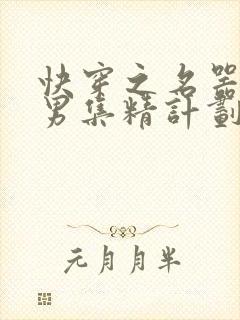 快穿之名器
男集精計劃
元月月半